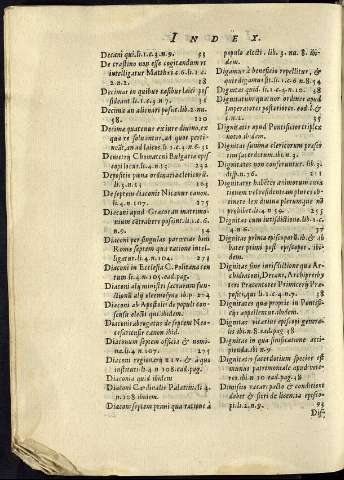 INDEX.
Decani qui.li.1.c.3.n.9. 53
De crastino non esse cogitandum et
intelligatur Matthei c.6.li.1 c.
2.n.2. 18
Decimæ in quibus casibus laici pos
sideant li.1.c.4 n.7. 35
Decima an alienari possit.lib.2.nu.
58. 120
Decima quatenus ex iure diuino, ex
quo ea soluantur, ad quos perti-
neāt, an ad laicos.li.1.c.4 n.6 31
Demetrij Chomateni Bulgariæ epis
copi locus.li.4 n.15 232
Depositio pœna ordinaria clericorū
lib.3.n.13
De septem diaconis Nicænus canon.
li.4.n 107. 275
Decani apud Græcos an matrimo-
nium cōtrahere possint.li.1.c.6.
n.9. 54
Diaconi per singulas parrœcias boni
Romæ septem qua ratione intelli-
ligatur.li.4.n.104. 274
Diaconi in Ecclesia C. Politana cen
tum li.4.n.105.ead.pag.
Diaconi alij ministri sacrarum fun-
ctionū alij eleemosynæ ib.p 274
Diaconi ab Apostolis de populi con-
sensu electi qui.ibidem.
Diaconi abrogatus de septem Neo-
cesariensis canon ibid.
Diaconum septem officia & nomi-
na.li.4 n.107. 275
Diaconi regionarij xiv. & à quo
instituti.li.4 n 108.ead.pag.
Diaconia quid ibidem
Diaconi Cardinales Palatini.li 4.
n.108 ibidem.
Diaconi septem primi qua ratione à
populo electi. lib.3. nu. 8. ibi-
dem.
Digamus à beneficio repellitur, &
quis digamus sit.li.1.c 6 n.8. 54
Dignitas quid.li.1.c.3 n.10. 48
Dignitatum quæ nor ordines apud
Imperatores posteriores. eod l.&
c.n.7.
Dignitates apud Pontificem triplex
notio ib.dem.
Dignitas summa clericorum præser
tim sacerdotum.ib.n 3.
Dignitates non conferuntur.lib.3.
diss.n.76. 211
Dignitates habētes animarum cura
tenentur residere dum plures ob-
tinere lex diuina plerumque nō
prohibet.lt.4 n 59. 255
Dignitas cum iurisdictione.lib.1.c.
4.n 6. 37
Dignitas prima episcopi.ib.& ab-
bates primi post episcopos. ibi-
dem.
Dignitas sine iurisdictione qua Ar-
chidiaconi, Decani, Archipresby
teri Præcentores Primicerij Præ-
positi, qui.li.1.c.4.n.7. 38
Dignitates quæ propriæ in Pontifi-
cijs appellentur.ibidem.
Dignitas vicarius episcopi genera-
lis ibi.n 8.ead.pag.48
Dignitas in qua significatione acci-
pienda.ibi n.7
Dignitatio sacerdotium species est
munus patrimoniale apud vete-
res.ibi.n 10 ead.pag.48
Dimissus vacari pacto & conditione
debet & fieri de licentia episco-
pi.li.2.n.9. 95
Dis-